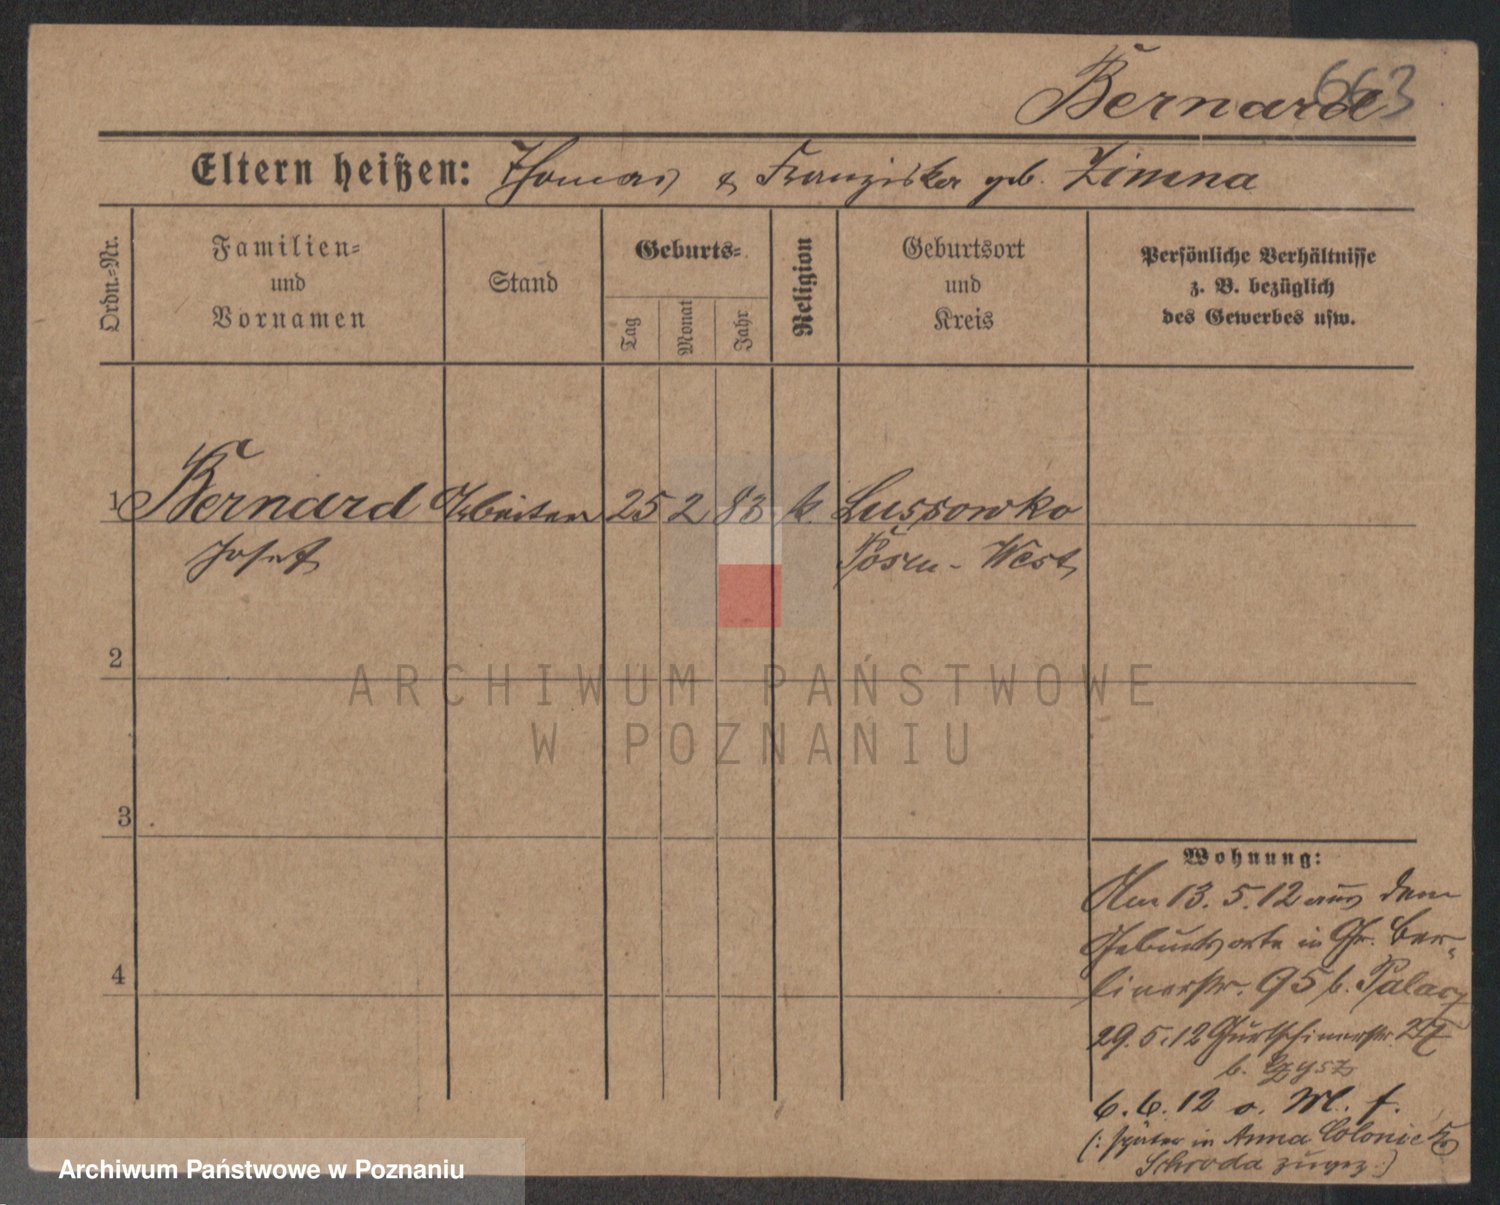 Bernard
663
Eltern heißen: Thomas & Franziska geb. Zimna
Ordn.=Nr.
Familien=
und
Vornamen
Stand
Geburts=
Tag
Monat
Jahr
Religion
Geburtsort
und
Kreis
Persönliche Verhältnisse
z. B. bezüglich
des Gewerbes usw.
1 Bernard Arbeiter 25 2 83 k. Lussowko
Josef Posen - West
2
ARCHIWUM PAŃSTWOWE
W POZNANIU
3
Wohnung:
Am 13. 5. 12 aus dem
Geburtsorte in Gr. Ber-
linerstr. 95 b. Palacz
29. 5. 12 Gurtschinerstr.
b.
6. 6. 12 o. M. f.
(: später in Anna Colonie Kr.
Schroda zugez.)
4
Archiwum Państwowe w Poznaniu